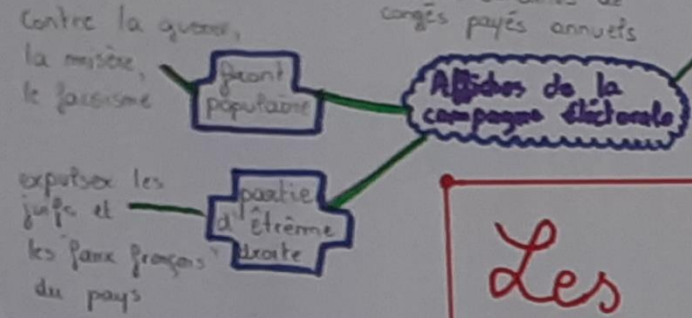 contre la guerre,
la misère,
le fascisme
front
populaire
congés payés annuels
Affiches de la
campagne éléctorale
expulser les
juifs et
les "faux français"
du pays
partie
d'Êtrême
droite
Les